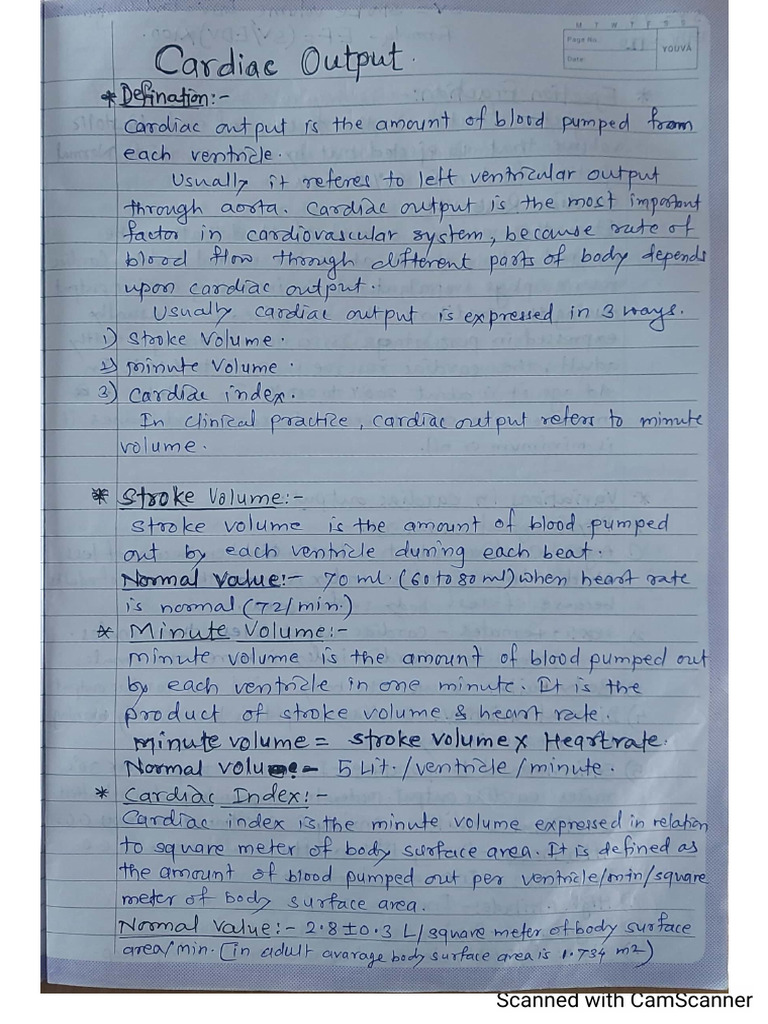 M T W T F S S
Page No.:
Date:
YOUVA
Cardiac Output.
* Defination:-
Cardiac output is the amount of blood pumped from
each ventricle.
Usually it referes to left ventricular output
through aorta. Cardiac output is the most important
factor in cardiovascular system, because rate of
blood flow through different parts of body depends
upon cardiac output.
Usually cardiac output is expressed in 3 ways.
1) Stroke Volume.
2) Minute Volume.
3) Cardiac index.
In clinical practice, cardiac output refers to minute
volume.
* Stroke Volume:-
Stroke volume is the amount of blood pumped
out by each ventricle during each beat.
Normal Value:- 70 ml. (60 to 80 ml) when heart rate
is normal (72/min.)
* Minute Volume:-
Minute volume is the amount of blood pumped out
by each ventricle in one minute. It is the
product of stroke volume & heart rate.
Minute volume = stroke volume x Heart rate.
Normal volume:- 5 Lit./ventricle/minute.
* Cardiac Index:-
Cardiac index is the minute volume expressed in relation
to square meter of body surface area. It is defined as
the amount of blood pumped out per ventricle/min/square
meter of body surface area.
Normal Value:- 2.8±0.3 L/square meter of body surface
area/min. (in adult avarage body surface area is 1.734 m2)
Scanned with CamScanner